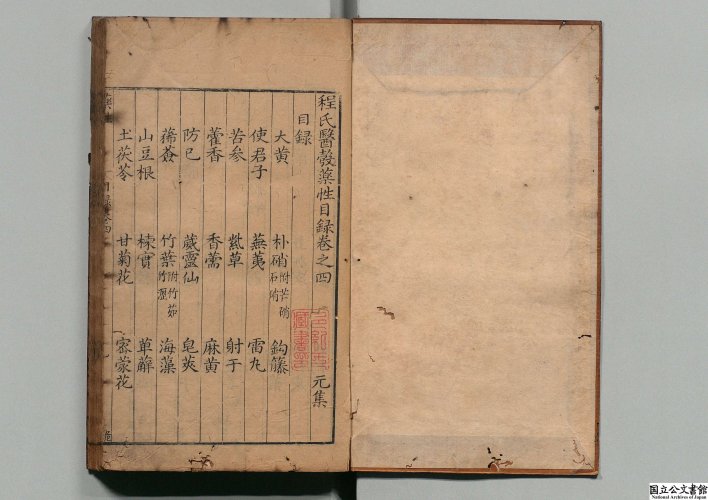 程氏醫彀藥性目録卷之四 元集
目録
大黄 朴硝附芒硝石硝 鈎藤
使君子 蕪荑 雷丸
苦参 紫草 射干
藿香 香薷 麻黄
防已 葳靈仙 皂莢
蒋薟 竹葉附竹茹竹瀝 海藻
山豆根 楝實 萆薢
土茯苓 甘菊花 密蒙花
国立公文書館
National Archives of Japan